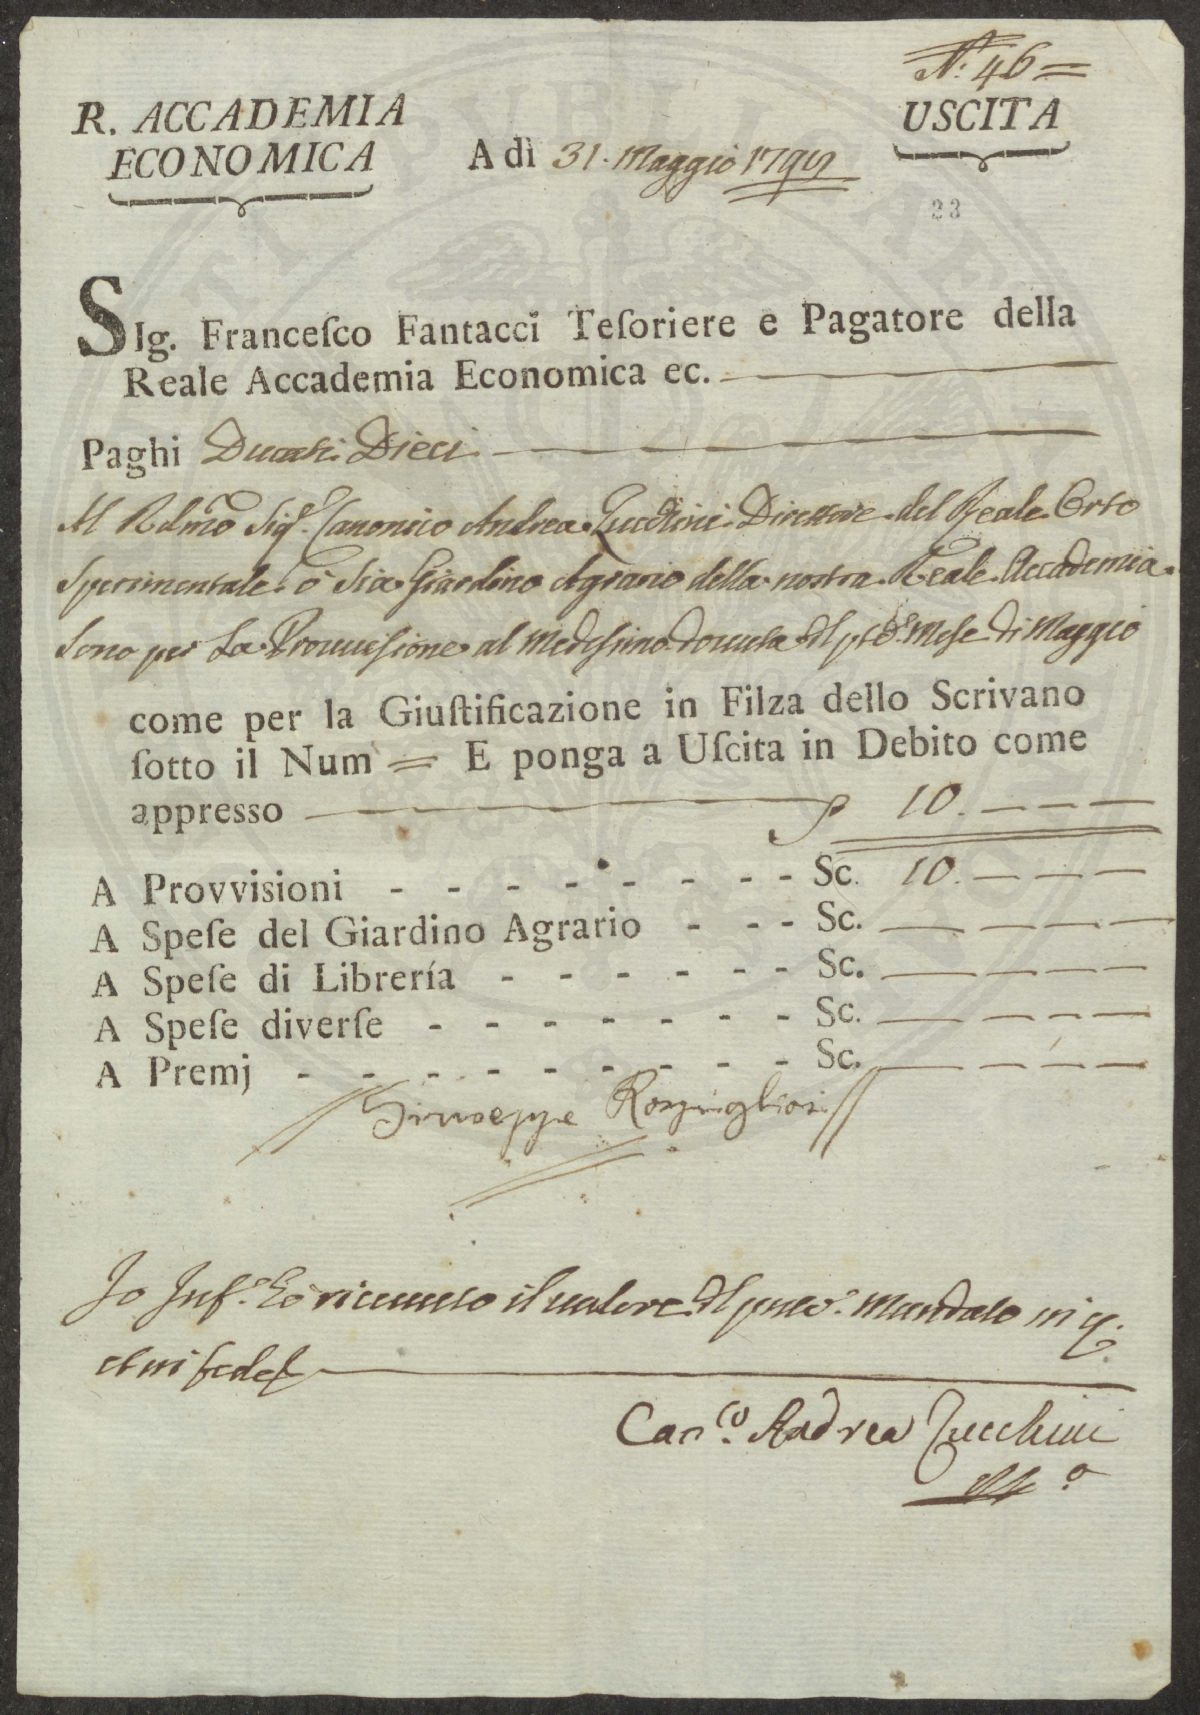 N.° 46 =
R. ACCADEMIA
ECONOMICA
A dì 31. Maggio
USCITA
23
SIg. Franceſco Fantacci Teſoriere e Pagatore della
Reale Accademia Economica ec.
Paghi Ducati Dieci
Al Rdmo Sigr. Canonico Andrea Zucchini Direttore del Reale Orto
Sperimentale o sia Giardino Agrario della nostra Reale Accademia
Sono per La Provvisione al Medesimo dovuta Mese di Maggio
come per la Giuſtificazione in Filza dello Scrivano
ſotto il Num = E ponga a Uſcita in Debito come
appresso 10.
A Provvisioni - - - - - - - - Sc. 10.
A Speſe del Giardino Agrario - - - Sc.
A Speſe di Librería - - - - - - Sc.
A Speſe diverſe - - - - - - - Sc.
A Premj - - - - - - - - - Sc.
Giuseppe Rospigliosi
Io Inf.o ho ricevuto il valore del Mandato in
fede
Can.co Andrea Zucchini